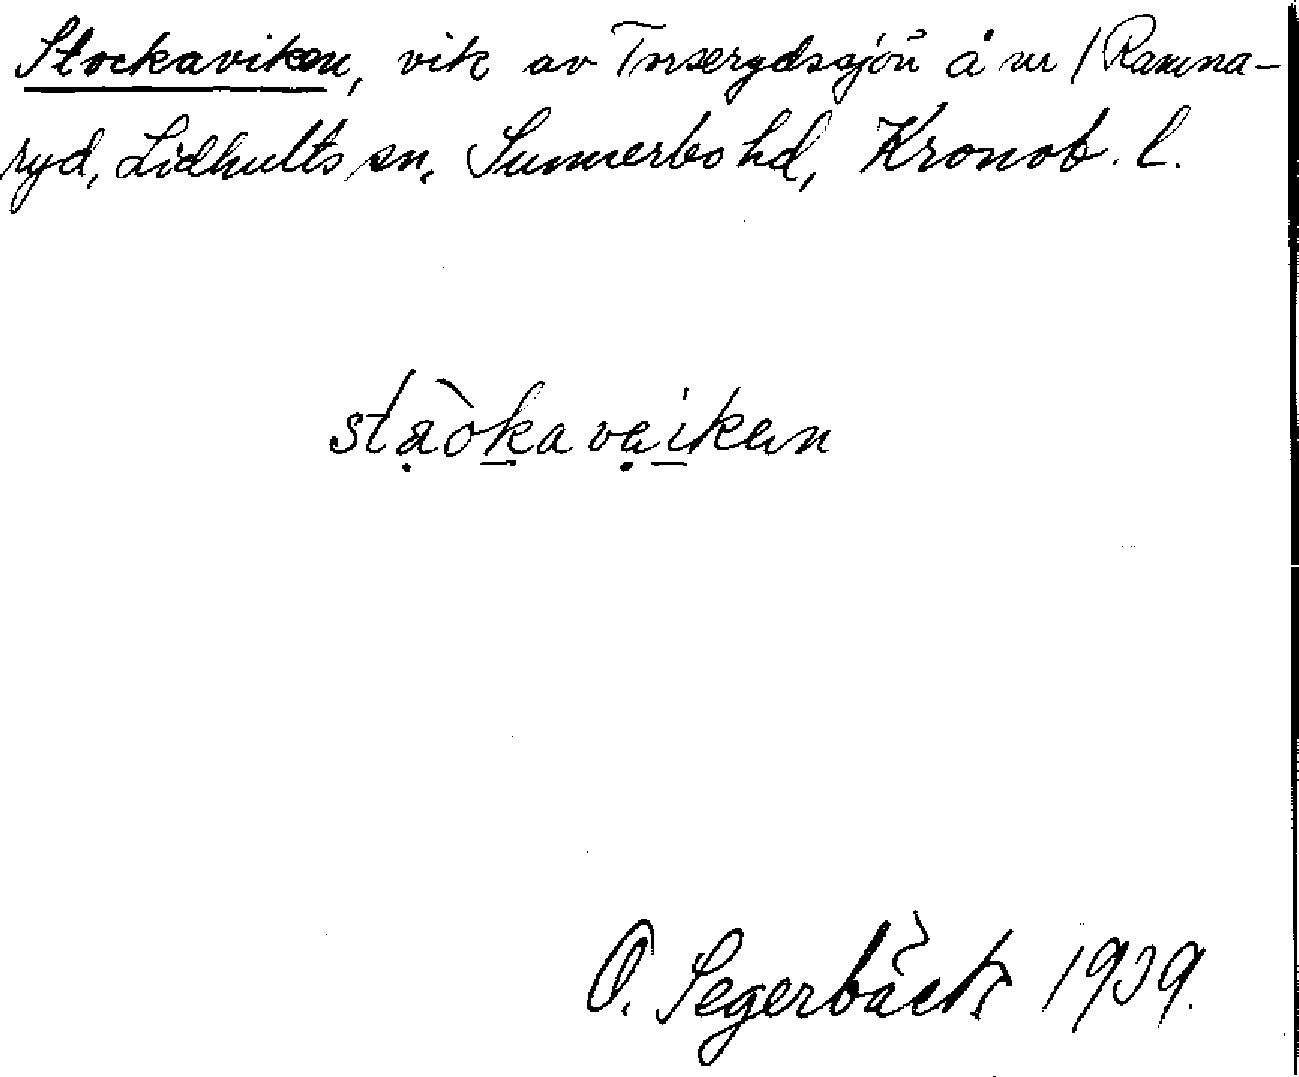 Stockaviken, vik av Tnserydssjön å nr 1 Ramna-
ryd, Lidhults sn, Sunnerbo hd, Kronob. l.
staòkavaikan
O. Segerbäck 1939.